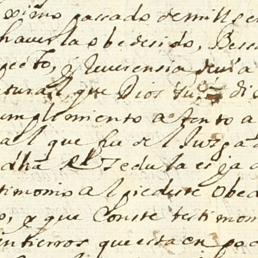 ximo passado de mill e
haverla obedesido, Bes
peto, y Reverensia devia
tural, que Dios gu.e di
umplimiento atento a
al que fue del Juzga
dha Rl Zedula es ja d
timonio al pie deste Obed
o, y que Conste testimon
ntierros que esta en po